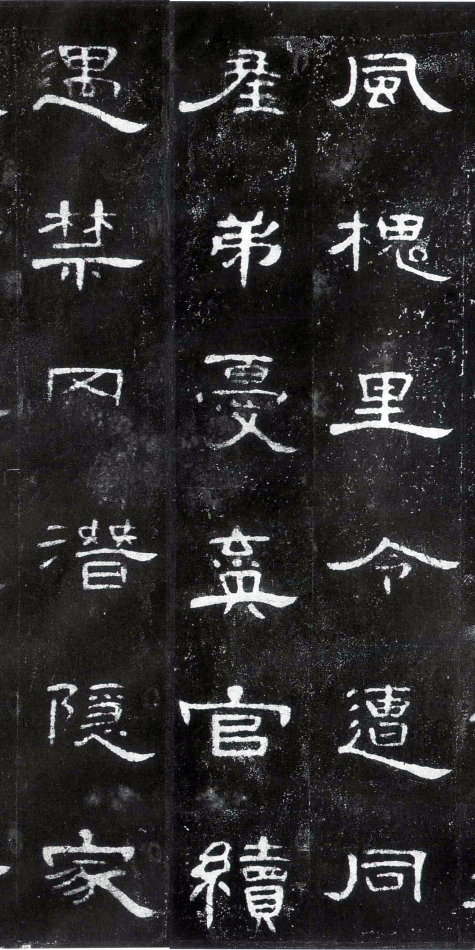 風槐里令遭同
産弟憂棄官續
遇禁冈潜隱家